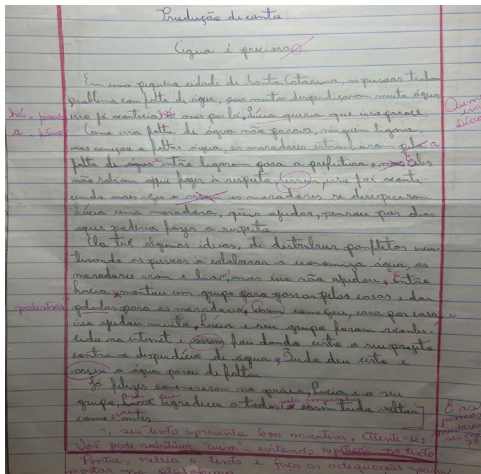 Produção de conto
Água é preciosa
Em uma pequena cidade de Santa Catarina, as pessoas tinham
problema com falta de água, pois muitos desperdiçavam muita água
isso já acontecia há mas por lá, Lúcia queria que isso parace
há - passado
a - futuro
Como essa falta de água não parava, ninguém ligava
mas começou a falta água, os moradores
falta de água então ligaram para a prefeitura, Eles
não sabiam o que fazer à respeito assim, isso foi aconte-
cendo mais vezes e os moradores se desesperaram
Lúcia uma moradora, quis ajudar, pensou por dias
oque poderia fazer a respeito.
Ela teve algumas ideias, de distribuir panfletos incen-
tivando as pessoas a colaborar e economizar água, os
moradores mas isso não ajudou. Então
Lúcia, montou um grupo para passar pelas casas e dar
palestras
para os moradores, assim começou, casa por casa e
isso ajudou muito, Lúcia e seu grupo foram reconhe-
cido na internet e assim foi dando certo o seu projeto
contra o desperdício de água, Tudo deu certo e
assim a água parou de faltar.
Já felizes comemoraram na praia, Lúcia e o seu
grupo, Lúcia agradeceu a todos e assim tudo voltou
como antes.
seu texto apresenta boa narrativa. Atente-se:
Você pode substituir "assim", evitando repetição no texto
Pontue, releia o texto e faça as adequações